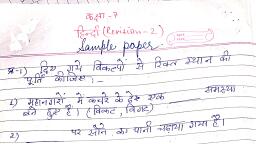 कक्षा - 7
हिन्दी (Revision - 2)
Sample paper
प्र-1) दिये गये विकल्पों से रिक्त स्थान की
पूर्ति कीजिए :-
1) महानगरों में कचरे के ढेर एक ______ समस्या
बने हुए हैं। (विकट, विराट)
2) ______ पर सोने का पानी चढ़ाया गया है।